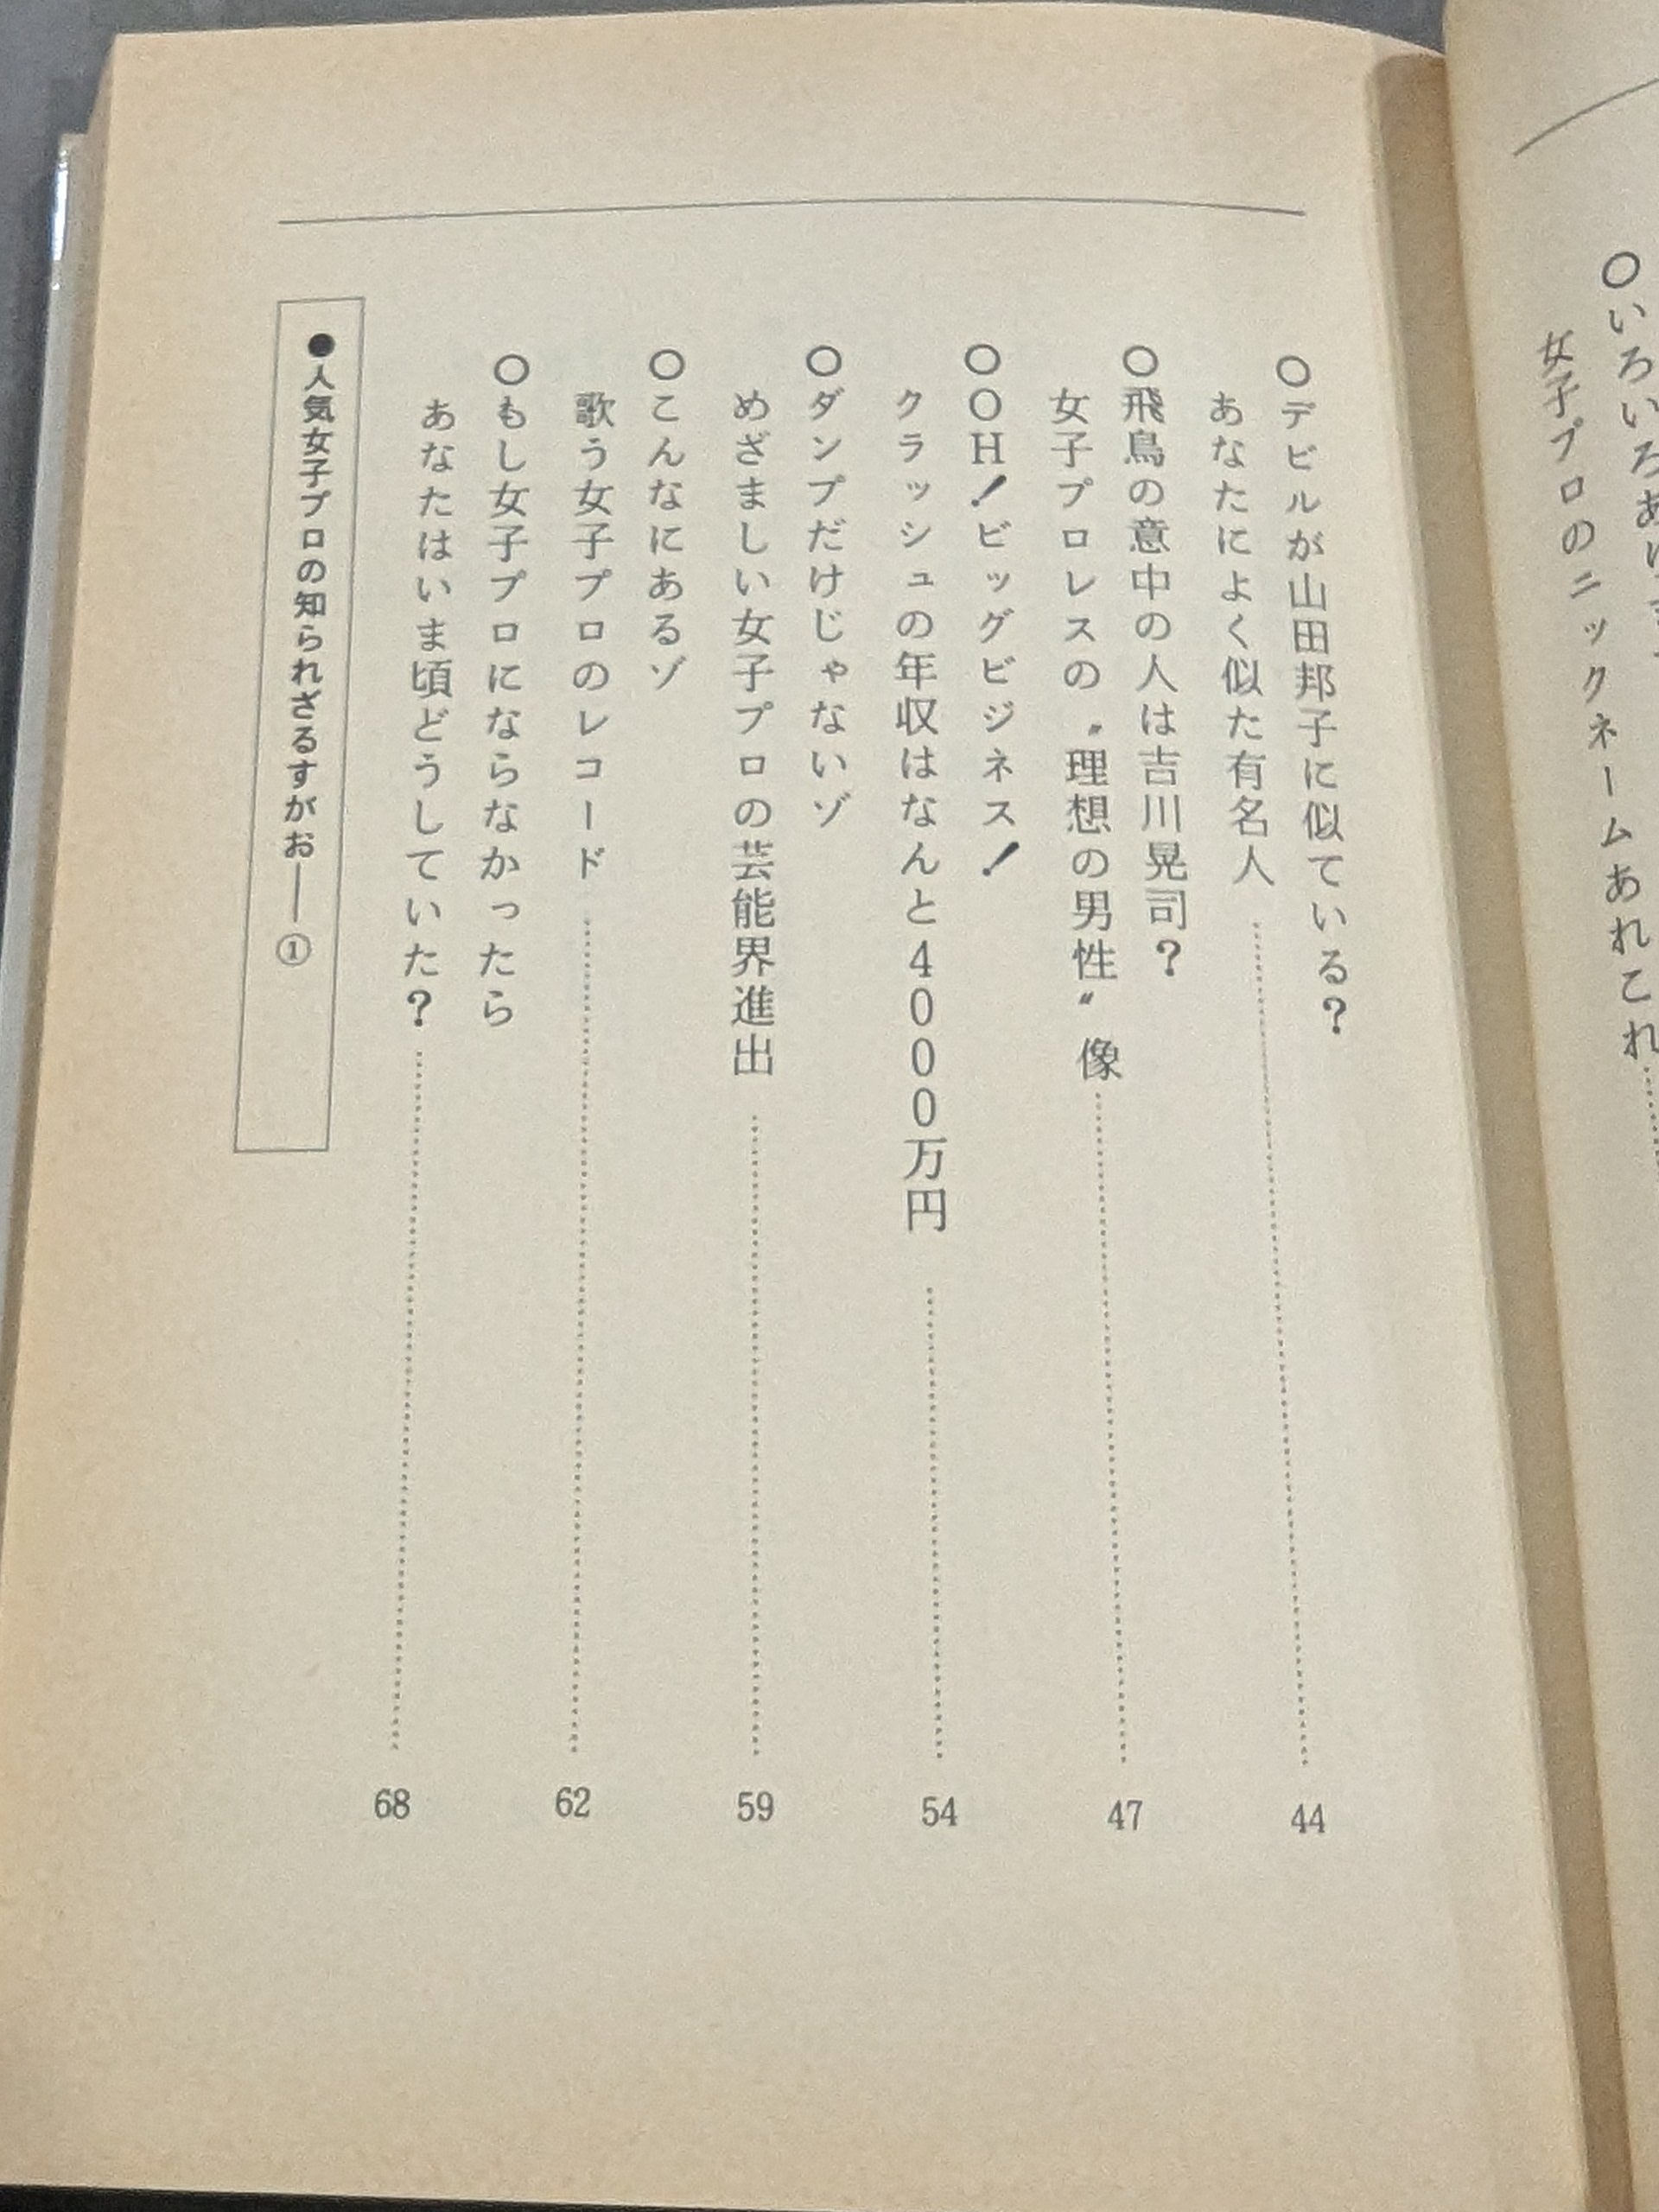 ○いろいろあ
女子プロのニックネームあれこれ
○デビルが山田邦子に似ている?
あなたによく似た有名人 44
○飛鳥の意中の人は吉川晃司?
女子プロレスの〝理想の男性〟像 47
○OH!ビッグビジネス!
クラッシュの年収はなんと4000万円 54
○ダンプだけじゃないゾ
めざましい女子プロの芸能界進出 59
○こんなにあるゾ
歌う女子プロのレコード 62
○もし女子プロにならなかったら
あなたはいま頃どうしていた? 68
●人気女子プロの知られざるすがお――①